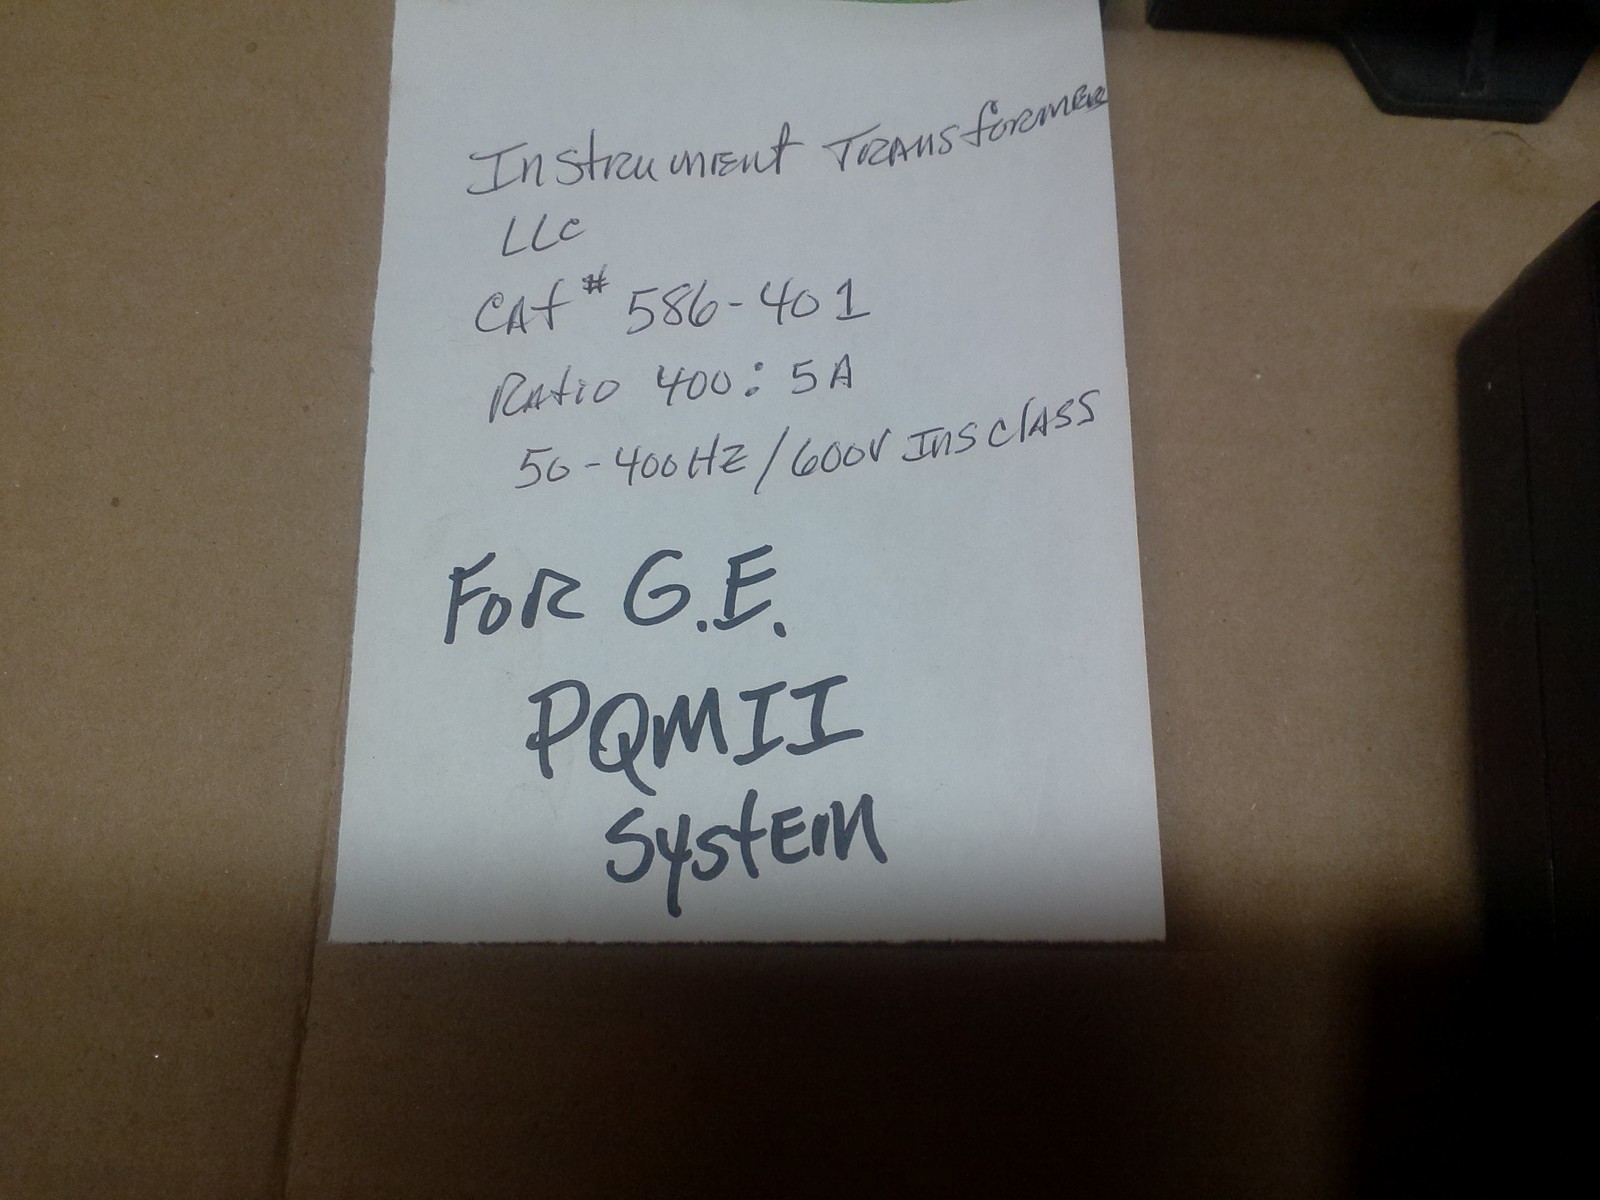 Instrument Transformer
LLC
Cat # 586-401
Ratio 400:5A
50-400HZ/600V Ins class
FOR G.E.
PQMII
System